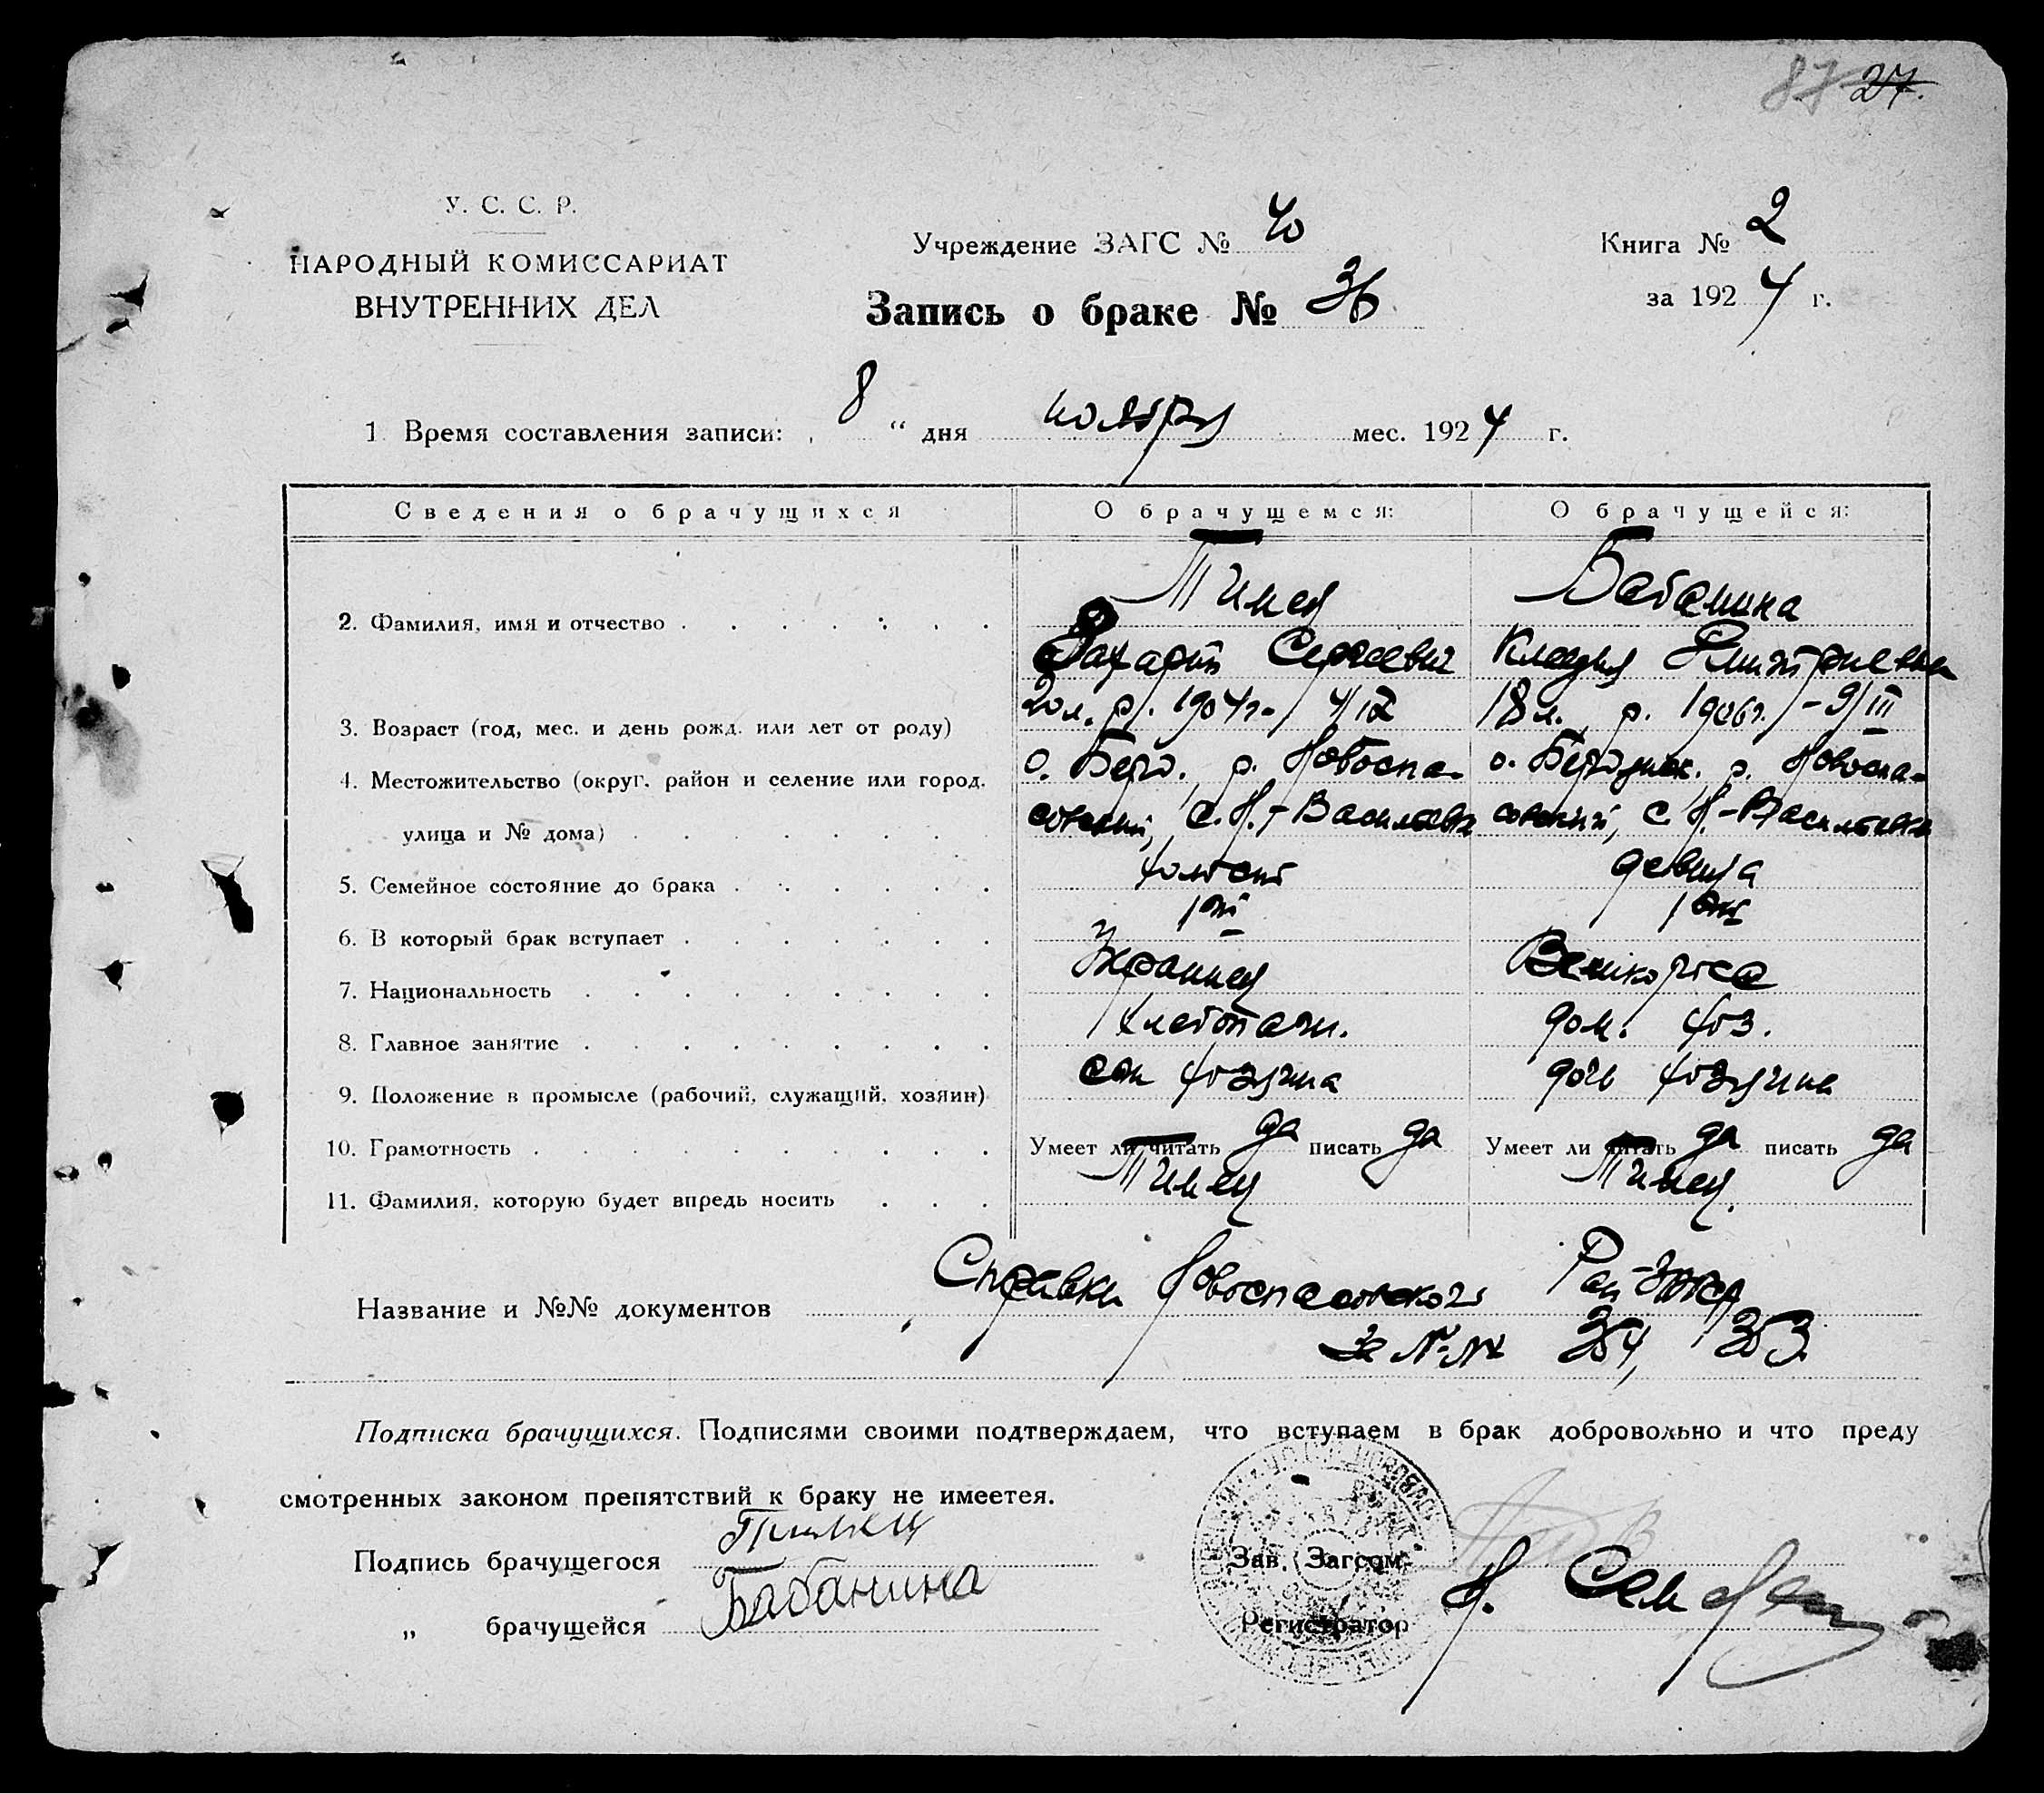 87 27.
У. С. С. Р.
НАРОДНЫЙ КОМИССАРИАТ
ВНУТРЕННИХ ДЕЛ
Учреждение ЗАГС № 40
Запись о браке № 36
Книга № 2
за 1924 г.
1 Время составления записи: „ 8 “ дня ноября мес. 1924 г.
Сведения о брачущихся О брачущемся: О брачущейся:
2. Фамилия, имя и отчество Бабанина
Захарий Сергеевич Клавдия Дмитриевна
3. Возраст (год, мес. и день рожд. или лет от роду) 20 л. р. 1904 г. 18 л. р. 1906 г. – 9/III
4. Местожительство (округ, район и селение или город, о. Берд. р. Новоспа- о. Бердянск. р. Новоспа-
улица и № дома) совский, с. Н.-Васильевка совский, с. Н.-Васильевка
5. Семейное состояние до брака холост девица
6. В который брак вступает 1ый 1ый
7. Национальность Украинец Великоросса
8. Главное занятие хлебопаш. дом. хоз.
9. Положение в промысле (рабочий, служащий, хозяин) сын хозяина дочь хозяина
10. Грамотность Умеет ли читать да писать да Умеет ли читать да писать да
11. Фамилия, которую будет впредь носить
Название и №№ документов Справки Новоспасовского Рай-Загса
за №№ 354, 353.
Подписка брачущихся. Подписями своими подтверждаем, что вступаем в брак добровольно и что преду
смотренных законом препятствий к браку не имеетея.
Подпись брачущегося
„ брачущейся Бабанина
Зав. Загсом
Регистратор